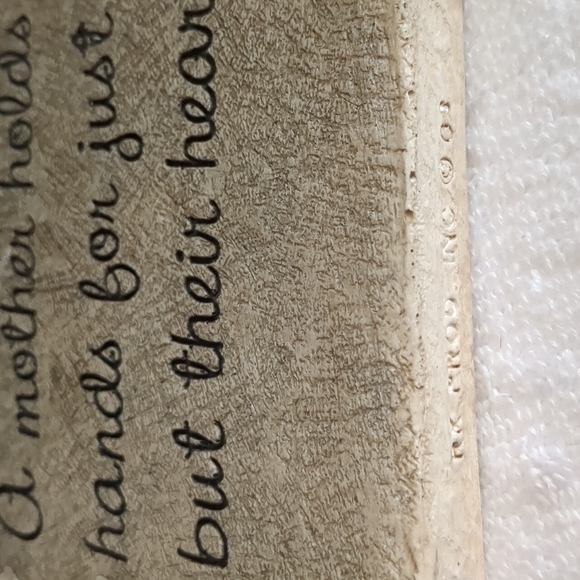 A mother holds
hands for just
but their hear
INC © 03